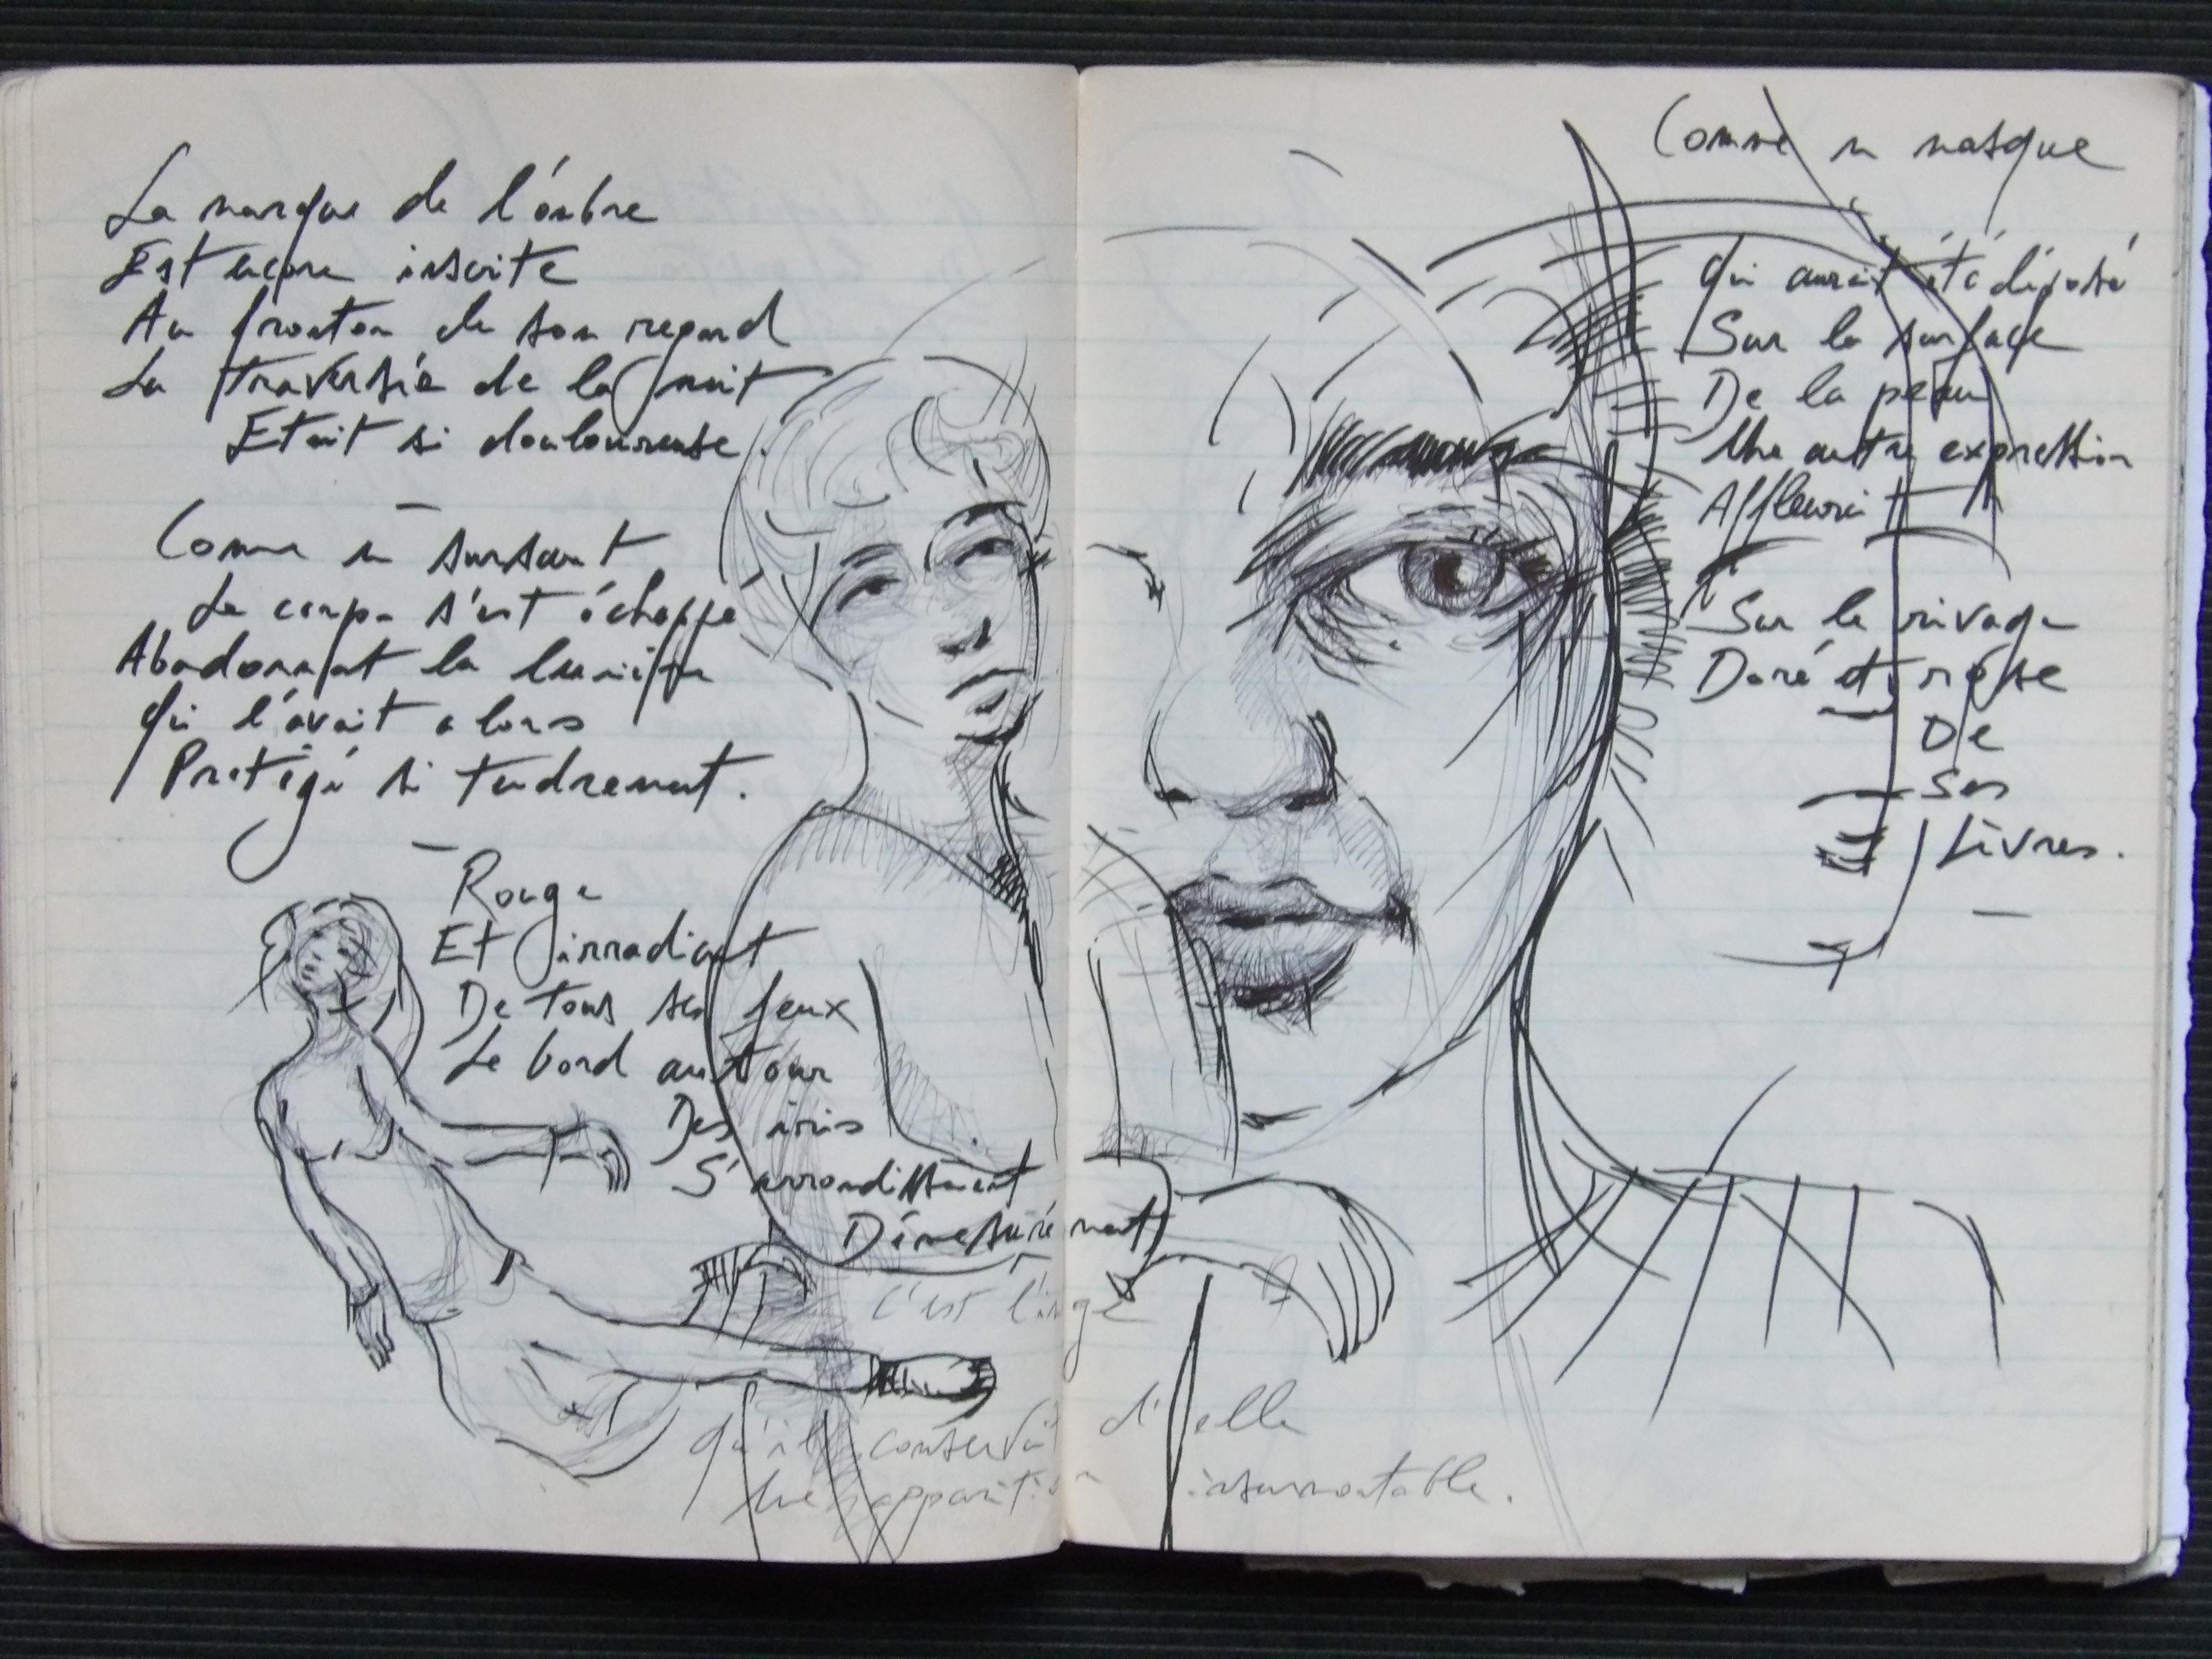 La marque de l'ombre
Est encore inscrite
Au fronton de son regard
La traversée de la nuit
Etait si douloureuse.
Comme un sursaut
Le corps s'est échappé
Abadonnant la lumière
Qui l'avait alors
Protégé si tendrement.
Rouge
Et irradiant
De tous ses feux
Le bord autour
Des iris
S'arrondissaient
Démesurément
C'est l'image
qu'il conservait d'elle
Une apparition insurmontable.
Comme un masque
Qui aurait été déposé
Sur la surface
De la peau
Une autre expression
Affleurait
Sur le rivage
Doré et rose
De
Ses
Lèvres.